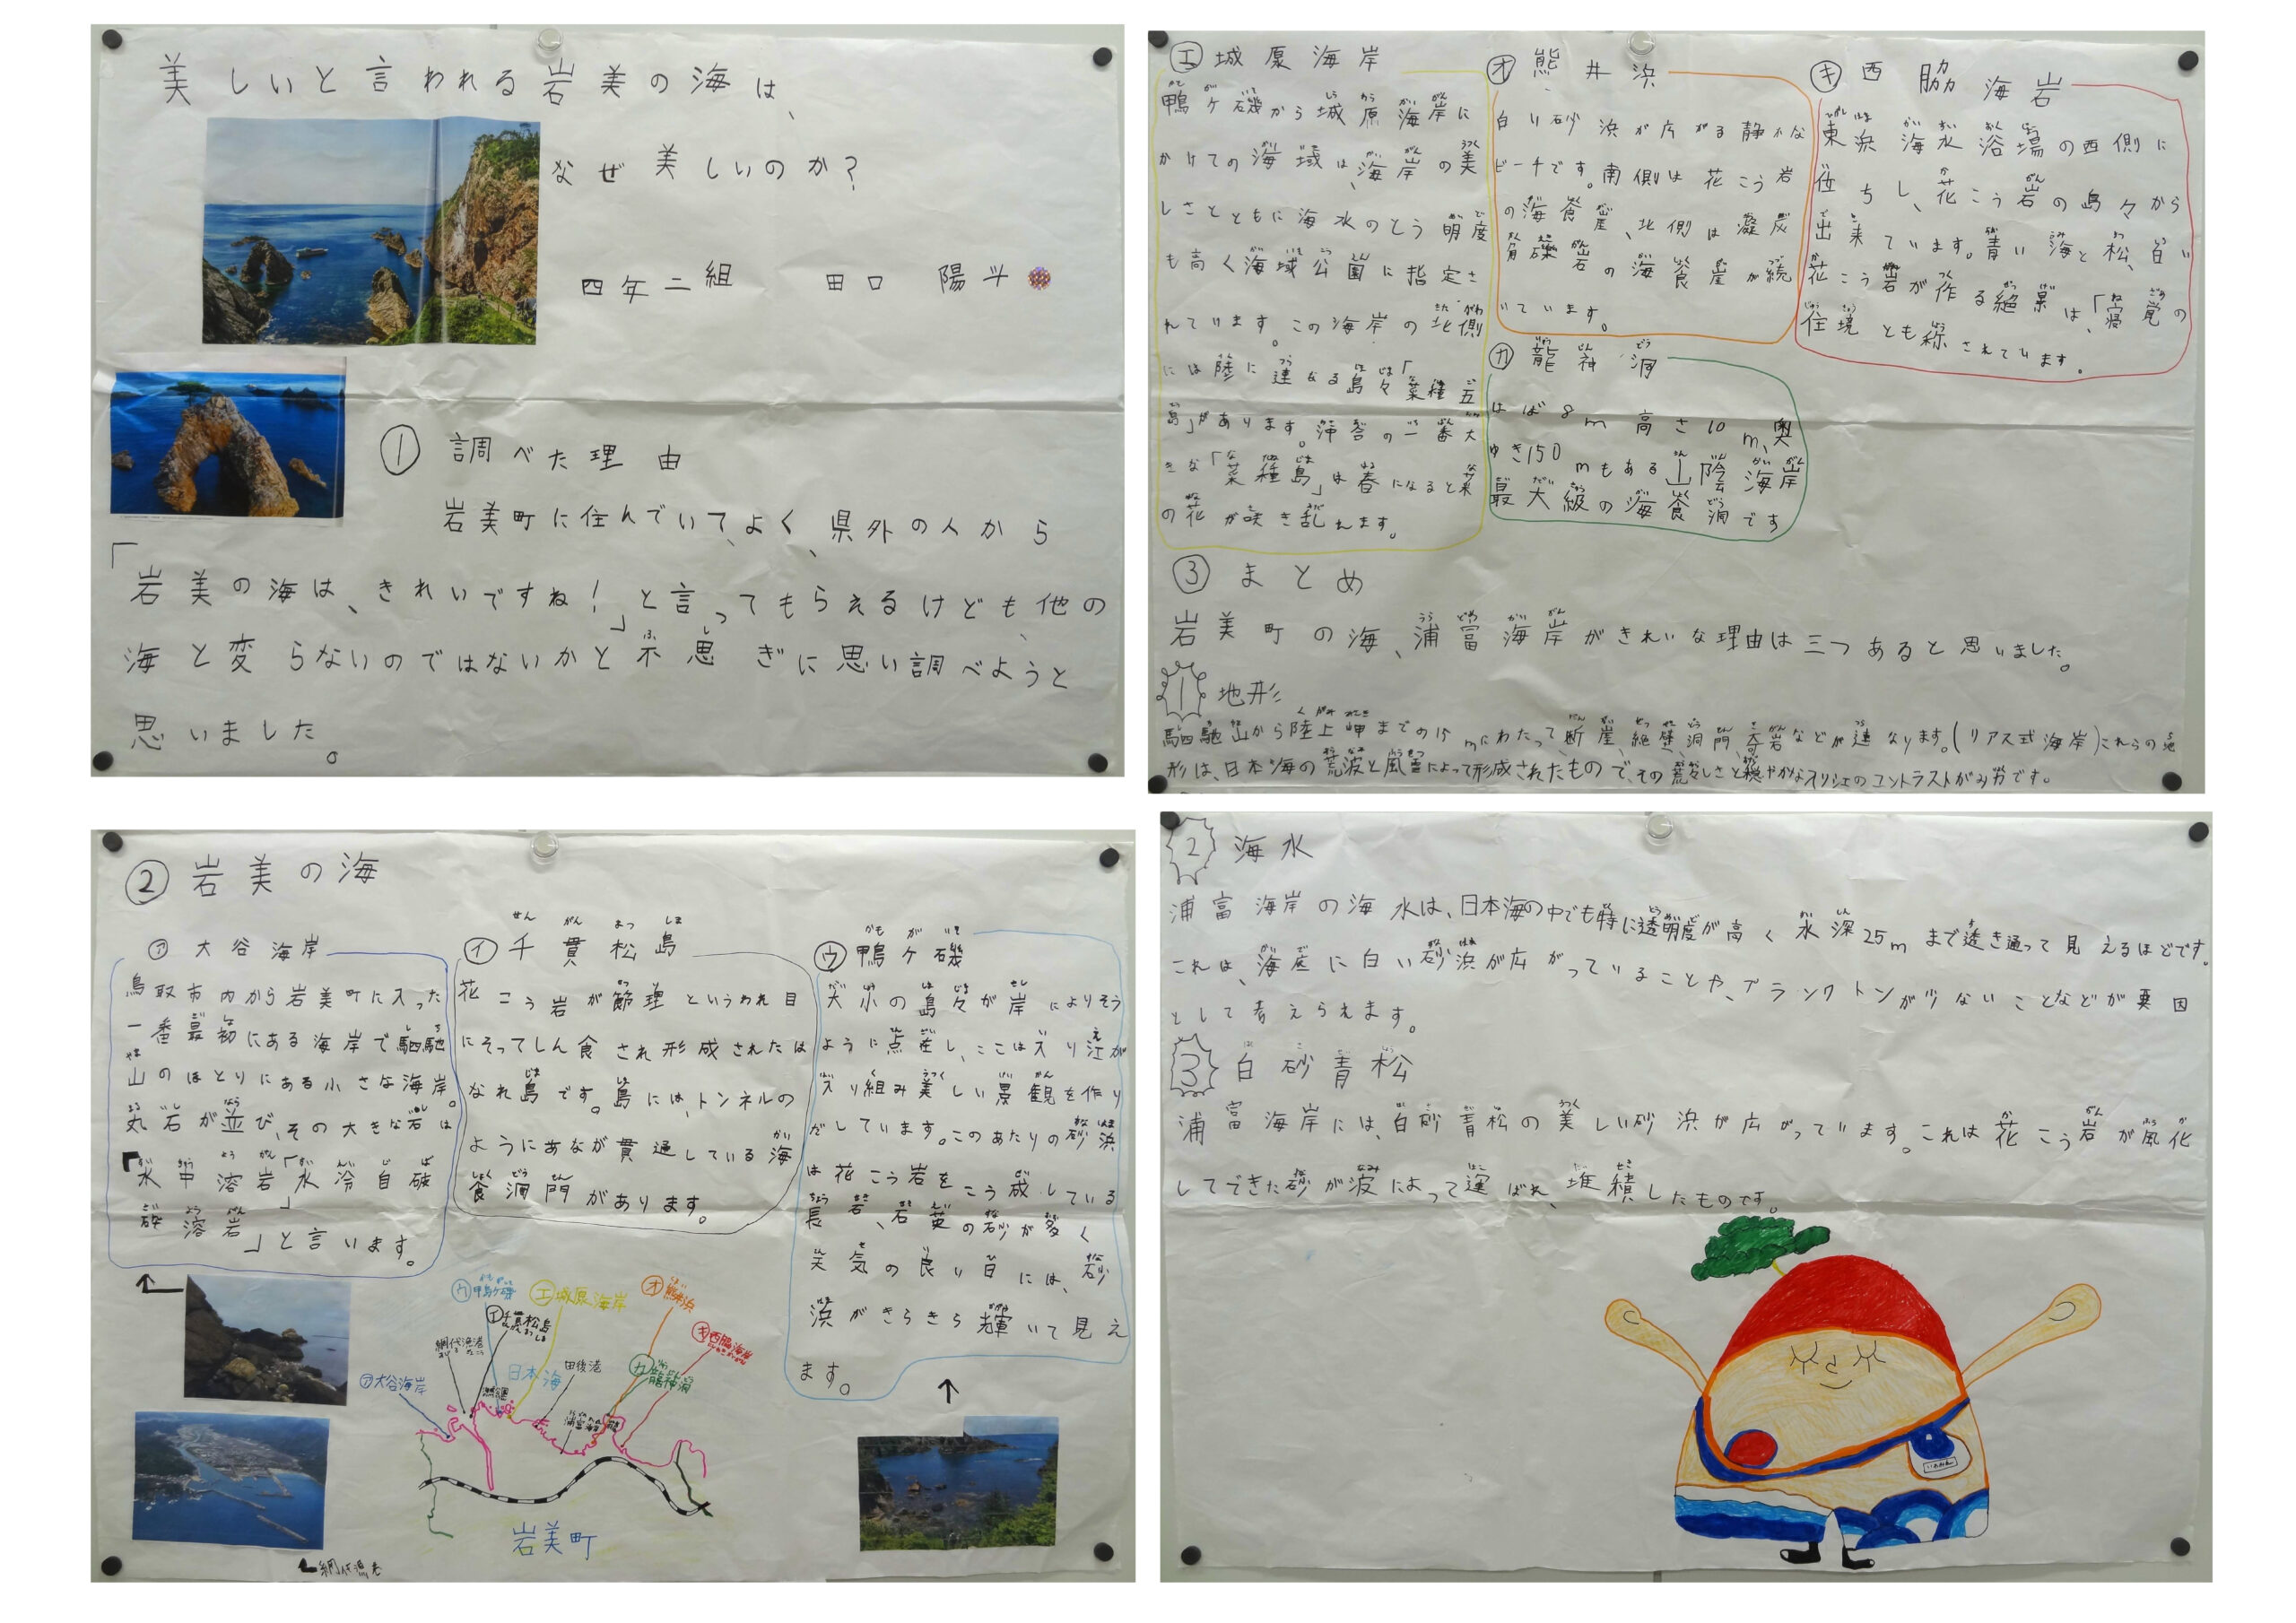 美しいと言われる岩美の海は、
なぜ美しいのか？
四年二組　田口　陽斗
① 調べた理由
岩美町に住んでいて、よく、県外の人から
「岩美の海は、きれいですね！」と言ってもらえるけども、他の
海と変らないのではないかと不思ぎに思い調べようと
思いました。
② 岩美の海
㋐ 大谷海岸
鳥取市内から岩美町に入った
一番最初にある海岸で駟馳
山のほとりにある小さな海岸。
丸石が並び、その大きな岩は
「水中溶岩」「水冷自破
砕溶岩」と言います。
㋑ 千貫松島
花こう岩が節理というわれ目
にそってしん食され形成されたは
なれ島です。島には、トンネルの
ようにあなが貫通している海
食洞門があります。
㋒ 鴨ヶ磯
大小の島々が岸によりそう
ように点在し、ここは入り江が
入り組み美しい景観を作り
だしています。このあたりの砂浜
は花こう岩をこう成している
長石、石英の砂が多く
天気の良い日には、砂
浜がきらきら輝いて見え
ます。
㋒鴨ヶ磯
㋓城原海岸
㋔熊井浜
㋑千貫松島
網代漁港
㋖西脇海岸
日本海
田後港
㋕龍神洞
㋐大谷海岸
岩美町
網代漁港
㋓ 城原海岸
鴨ヶ磯から城原海岸に
かけての海域は、海岸の美
しさとともに海水のとう明度
も高く海域公園に指定さ
れています。この海岸の北側
には陸に連なる島々「菜種五
島」があります。沖合の一番大
きな「菜種島」は春になると菜
の花が咲き乱れます。
㋔ 熊井浜
白い砂浜が広がる静かな
ビーチです。南側は花こう岩
の海食崖、北側は凝灰
角礫岩の海食崖が続
いています。
㋕ 龍神洞
はば8m高さ10m、奥
ゆき150mもある山陰海岸
最大級の海食洞です
㋖ 西脇海岩
東浜海水浴場の西側に
位ちし、花こう岩の島々から
出来ています。青い海と松、白い
花こう岩が作る絶景は、「寝覚の
佳境とも称されています。
③ まとめ
岩美町の海、浦富海岸がきれいな理由は三つあると思いました。
1 地形
駟馳山から陸上岬までの15mにわたって、断崖、絶壁、洞門、奇岩などが連なります。(リアス式海岸)これらの地
形は、日本海の荒波と風雪によって形成されたもので、その荒々しさと穏やかな入り江のコントラストがみ力です。
2 海水
浦富海岸の海水は、日本海の中でも特に透明度が高く水深25mまで透き通って見えるほどです。
これは、海底に白い砂浜が広がっていることや、プランクトンが少ないことなどが要因
として考えられます。
3 白砂青松
浦富海岸には、白砂青松の美しい砂浜が広がっています。これは花こう岩が風化
してできた砂が波によって運ばれ、堆積したものです。